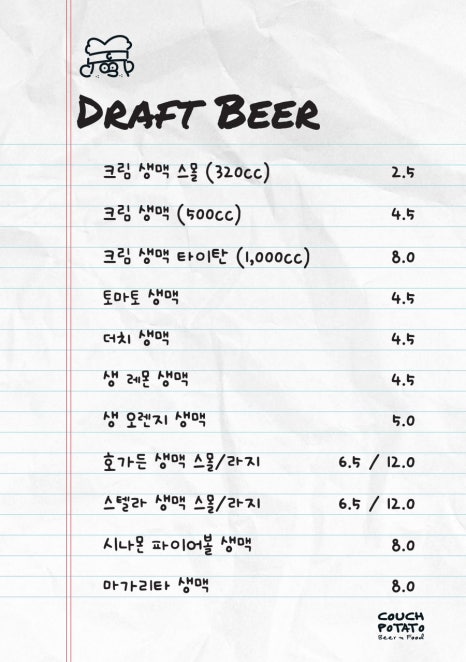 DRAFT BEER
크림 생맥 스몰 (320cc) 2.5
크림 생맥 (500cc) 4.5
크림 생맥 타이탄 (1,000cc) 8.0
토마토 생맥 4.5
더치 생맥 4.5
생 레몬 생맥 4.5
생 오렌지 생맥 5.0
호가든 생맥 스몰/라지 6.5 / 12.0
스텔라 생맥 스몰/라지 6.5 / 12.0
시나몬 파이어볼 생맥 8.0
마가리타 생맥 8.0
COUCH
POTATO
Beer n Food